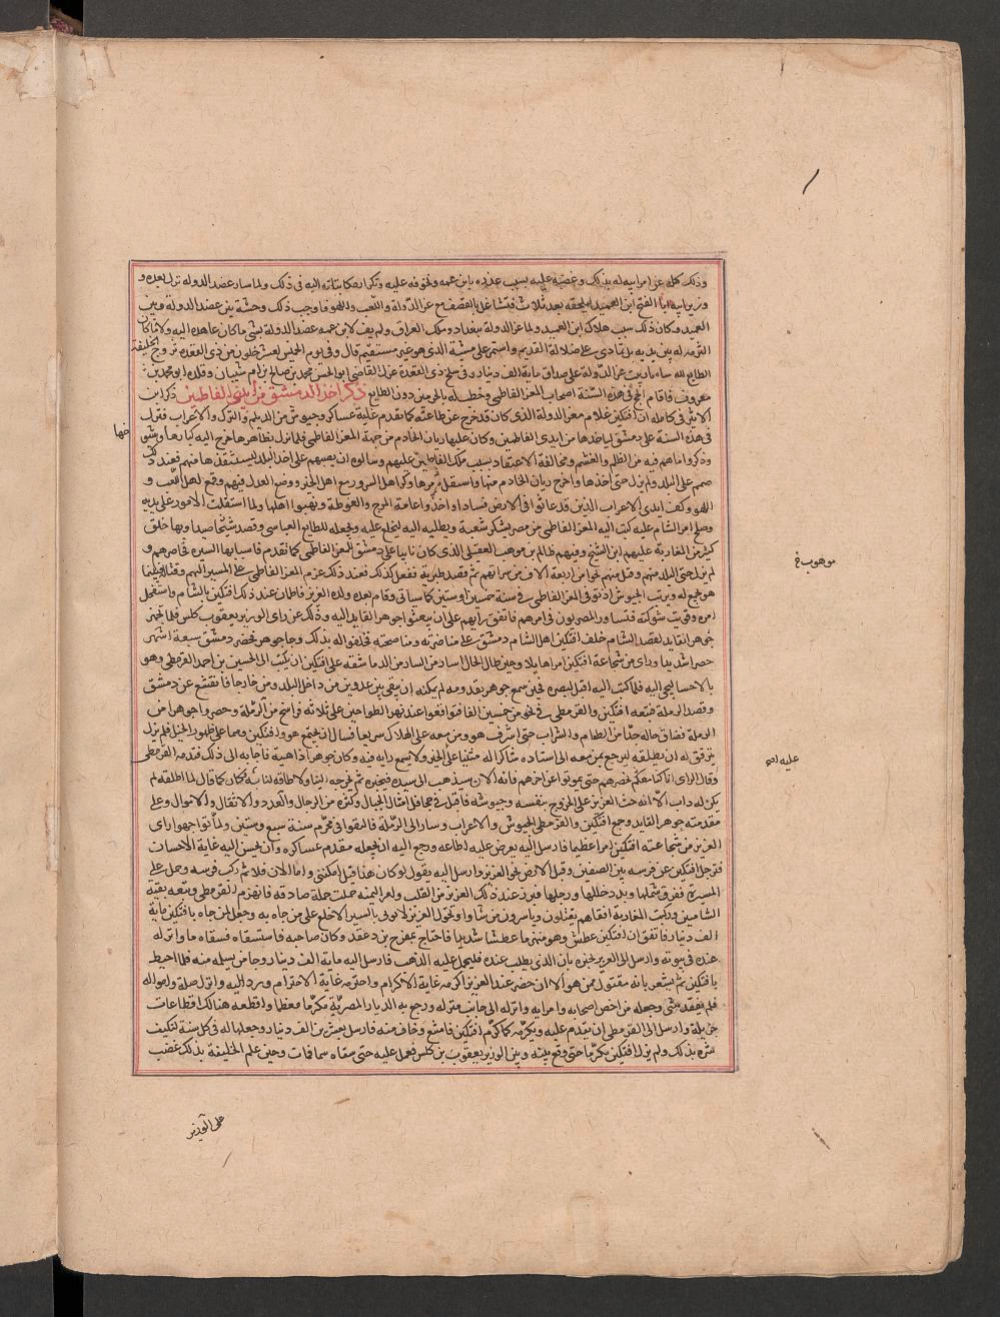 وذلك كله عن امر ابيه له بذلك وغضبه عليه بسبب غدره بابن عمه وخوفه عليه وتكرار مكاتباته اليه في ذلك ولما سار عضد الدوله ترك بعده و
وزير ابيه ابا الفتح ابن العميد ليلحقه بعد ثلاث فتشاغل بالقصف مع عز الدولة واللعب واللهو فاوجب ذلك وحشة بين عضد الدولة وبين
العميد وكان ذلك سبب هلاك ابن العميد ولما عز الدولة بغداد وملك العراق ولم يف لابن عمه عضد الدولة بشي مما كان عاهده اليه ولا ما كان
التزمه له بين يديه بل تمادى على ضلاله القديم واستمر على مشية الذي هو غير مستقيم قال وفي يوم الخميس لعشر خلون من ذي القعده تزوج الخليفة
الطايع لله شاه ناز بنت عز الدولة على صداق ماية الف دينار وفي سلخ ذي القعدة عزل القاضي ابو الحسن محمد بن صالح بن ام شيبان وقلده ابو محمد بن
معروف فاقام الحج في هذه السنة اصحاب المعز الفاطمي وخطب له بالحرمين دون الطايع ذكر اخذ الدمشق من ايدي الفاطمين ذكر ابن
الاثير في كامله ان افتكين غلام معز الدولة الذي كان قد خرج عن طاعته كما تقدم عليه عساكر وجيوش من الديلم والترك والاعراب فنزل
في هذه السنة على دمشق لياخذها من ايدي الفاطميين وكان عليها ريان الخادم من جهة المعز الفاطمي فلما نزل بظاهرها خرج اليه كبارها وشيو
خها
وذكروا ما هم فيه من الظلم والغشم ومخالفة الاعتقاد بسبب ملك الفاطمين عليهم وسالوه ان يصمم على اخذ البلد ليستنقذها منهم فعند ذلك
صمم على البلد ولم يزل حتى اخذها واخرج ريان الخادم منها واستقل بامرها وكرا اهل الشرور مع اهل الخير ووضع العدل فيهم وقمع اهل اللعب و
اللهو وكف ايدي الاعراب الذين قد عاثوا في الارض فسادا واخذوا عامة المرج والغوطة ونهبوا اهلها ولما استقلت الامور على يديه
وصلح امر الشام عليه كتب اليه المعز الفاطمي من مصر يشكر سعيه ويطلبه اليه ليخلع عليه ويجعله للطايع العباسي وقصد شيخا صيدا وبها خلق
كثير من المغاربة عليهم ابن الشيخ وفيهم ظالم بن موهب العقيلي الذي كان نايبا على دمشق للمعز الفاطمي كما تقدم فاسا بها السيره فحاصرهم و
موهوب خ
لم يزل حتى البلد منهم وقتل منهم نحوا من اربعة الاف من سراتهم ثم قصد طبرية ففعل كذلك فعند ذلك عزم المعز الفاطمي على المسير اليهم وقتاله فبينما
هو يجمع له ويرتب الجيوش اذ توفي المعز الفاطمي في سنة خمس وستين كما سياتي وقام بعده ولده العزيز فاطمان عند ذلك افتكين بالشام واستفحل
امره وقويت شوكته فتشاور المصريون في امرهم فاتفق رايهم على ان يبعثوا جوهر القايد اليه وذلك عن راي الوزير يعقوب كلس فلما تجهز
جوهر القايد لقصد الشام حلف افتكين اهل الشام دمشق على مناصرته ومناصحته فحلفوا له بذلك وجا جوهر فحصر دمشق سبعة اشهر
حصرا شديدا وراى من شجاعة افتكين امرا هايلا وحين طال الحال اشار من اشار من الدماشقه على افتكين ان يكتب الى الحسين بن احمد القرمطي وهو
بالاحسا ليجي اليه فلما كتب اليه اقبل لنصره فحين سمع جوهر بقدومه لم يمكنه ان يبقى بين عدوين من داخل البلد ومن خارجها فانقشع عن دمشق
وقصد الرملة فتبعه افتكين والقرمطي في نحو من خمسين الفا فتواقعوا عند نهر الطواحين على ثلاثة فراسخ من الرملة وحصروا جوهرا من
الرملة فضاق حاله جدا من الطعام والشراب حتى اشرف هو ومن معه على الهلاك سريعا فسال ان يجتمع هو وافتكين وهما على ظهور الخيل فلم يزل
يترفق له ان يطلقه ليرجع بمن معه الى استاذه شاكرا له مثنيا على الخير ولا يسمع رايه فيه وكان جوهرا ذا هبة فاجابه الى ذلك فندمه القرمطي
عليه اسم
وقال الراي انا كنا معكم نحصرهم حتى يموتوا عن اخرهم فانه الان سيذهب الى سيده فيخبره ثم يخرجه الينا ولا طاقه لنا به فكان كما قال لما اطلقه لم
يكن له داب الا انه حث العزيز على الخروج بنفسه وجيوشه فاقبل في جحافل امثال الجبال وكثرة من الرجال والعدد والاثقال والاموال وعلى
مقدمته جوهر القايد وجمع افتكين والقرمطي الجيوش والاعراب وسار الى الرملة فالتقوا في محرم سنة سبع وستين ولما تواجهوا راى
العزيز من شجاعته افتكين امرا عظيما فارسل اليه يعرض عليه ان اطاعه ورجع اليه ان يجعله مقدم عساكره وان يحسن اليه غاية الاحسان
فترجل افتكين عن فرسه بين الصفين وقبل الارض نحو العزيز وارسل اليه يقول لو كان هذا قبل امكنني واما الان فلا ثم ركب فرسه وحمل على
الميسرة ففرق شملها وبدد خيلها ورجلها فبرز عند ذلك العزيز من القلب وامر الميمنه فحملت حملة صادقه فانهزم القرمطي وتبعه بقية
الشاميين وركبت المغاربة اقفاهم يقتلون وياسرون من شاوا وتحول العزيز لا يوتى بالاسير الا خلع على من جاه به وجعل لمن جاه بافتكين ماية
الف دينار فاتفق ان افتكين عطش وهو منهزم عطشا شديدا فاحتاج بمفرج بن دغفل وكان صاحبه فاستسقاه فسقاه ما وانزله
عنده في بيوته وارسل الى العزيز يخبره بان الذي يطلب عنده فليحمل عليه الذهب فارسل اليه ماية الف دينار وجا من يسلمه منه فلما احيط
بافتكين لم يشعر بانه مقتول فما هو الا ان حضر عند العزيز اكرمه غاية الاكرام واحترمه غاية الاحترام ورد اليه وانزل صلة وامواله
فلم يفقد منه شي وجعله من اخص اصحابه وامرايه وانزله الى جانب منزله ورجع به الى الديار المصرية مكرما معظما واقطعه هنالك اقطاعات
جزيلة وارسل الى القرمطي ان يقدم عليه ويكرمه كما كرم افتكين فامتنع وخاف منه فارسل بعشرين الف دينار وجعلها له في كل سنة لتكيف
شره بذلك ولم يزل افتكين مكرما حتى وقع بينه وبين الوزير يعقوب بن كلس فعمل عليه حتى سقاه سما فمات وحين علم الخليفة بذلك غضب
على الوزير